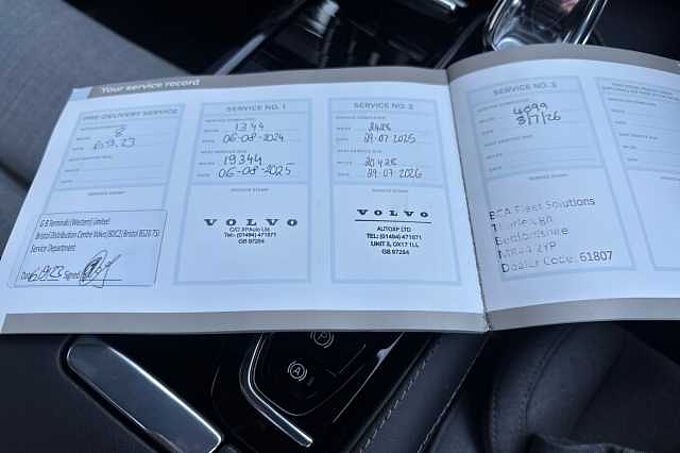 Your service record
PRE-DELIVERY SERVICE
8
6.9.23
SERVICE STAMP
G B Terminals (Western) Limited
Bristol Distribution Centre Volvo (BDC2) Bristol BS20 7SJ
Service Department
Date 6/9/23 Signed
SERVICE NO. 1
1344
06-08-2024
NEXT SERVICE DUE
19344
06-08-2025
SERVICE STAMP
VOLVO
Tel: (01494) 471871
GB 97264
SERVICE NO. 2
2428
29.07.2025
NEXT SERVICE DUE
20428
29.07.2026
SERVICE STAMP
VOLVO
AUTOXP LTD
TEL: (01494) 471871
UNIT 3, OX17 1LL
GB 97264
SERVICE NO. 3
4099
3/7/26
SERVICE STAMP
BCA Fleet Solutions
Bedfordshire
Dealer Code: 61807
A